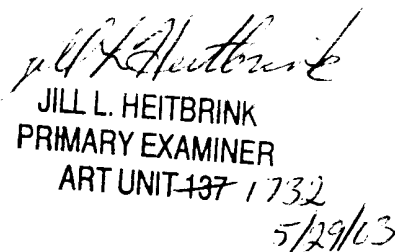 Jill L. Heitbrink
JILL L. HEITBRINK
PRIMARY EXAMINER
ART UNIT 137 1732
5/29/03